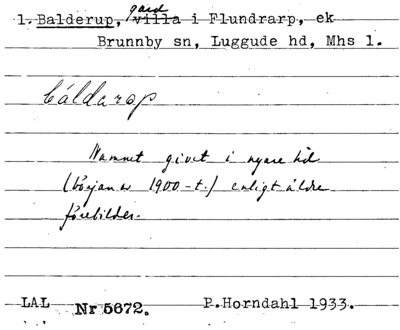 gård
1. Balderup, villa i Flundrarp, ek
Brunnby sn, Luggude hd, Mhs l.
báldarop
Namnet givet i nyare tid
(början av 1900-t.) enligt äldre
förebilder.
LAL Nr 5672. P.Horndahl 1933.